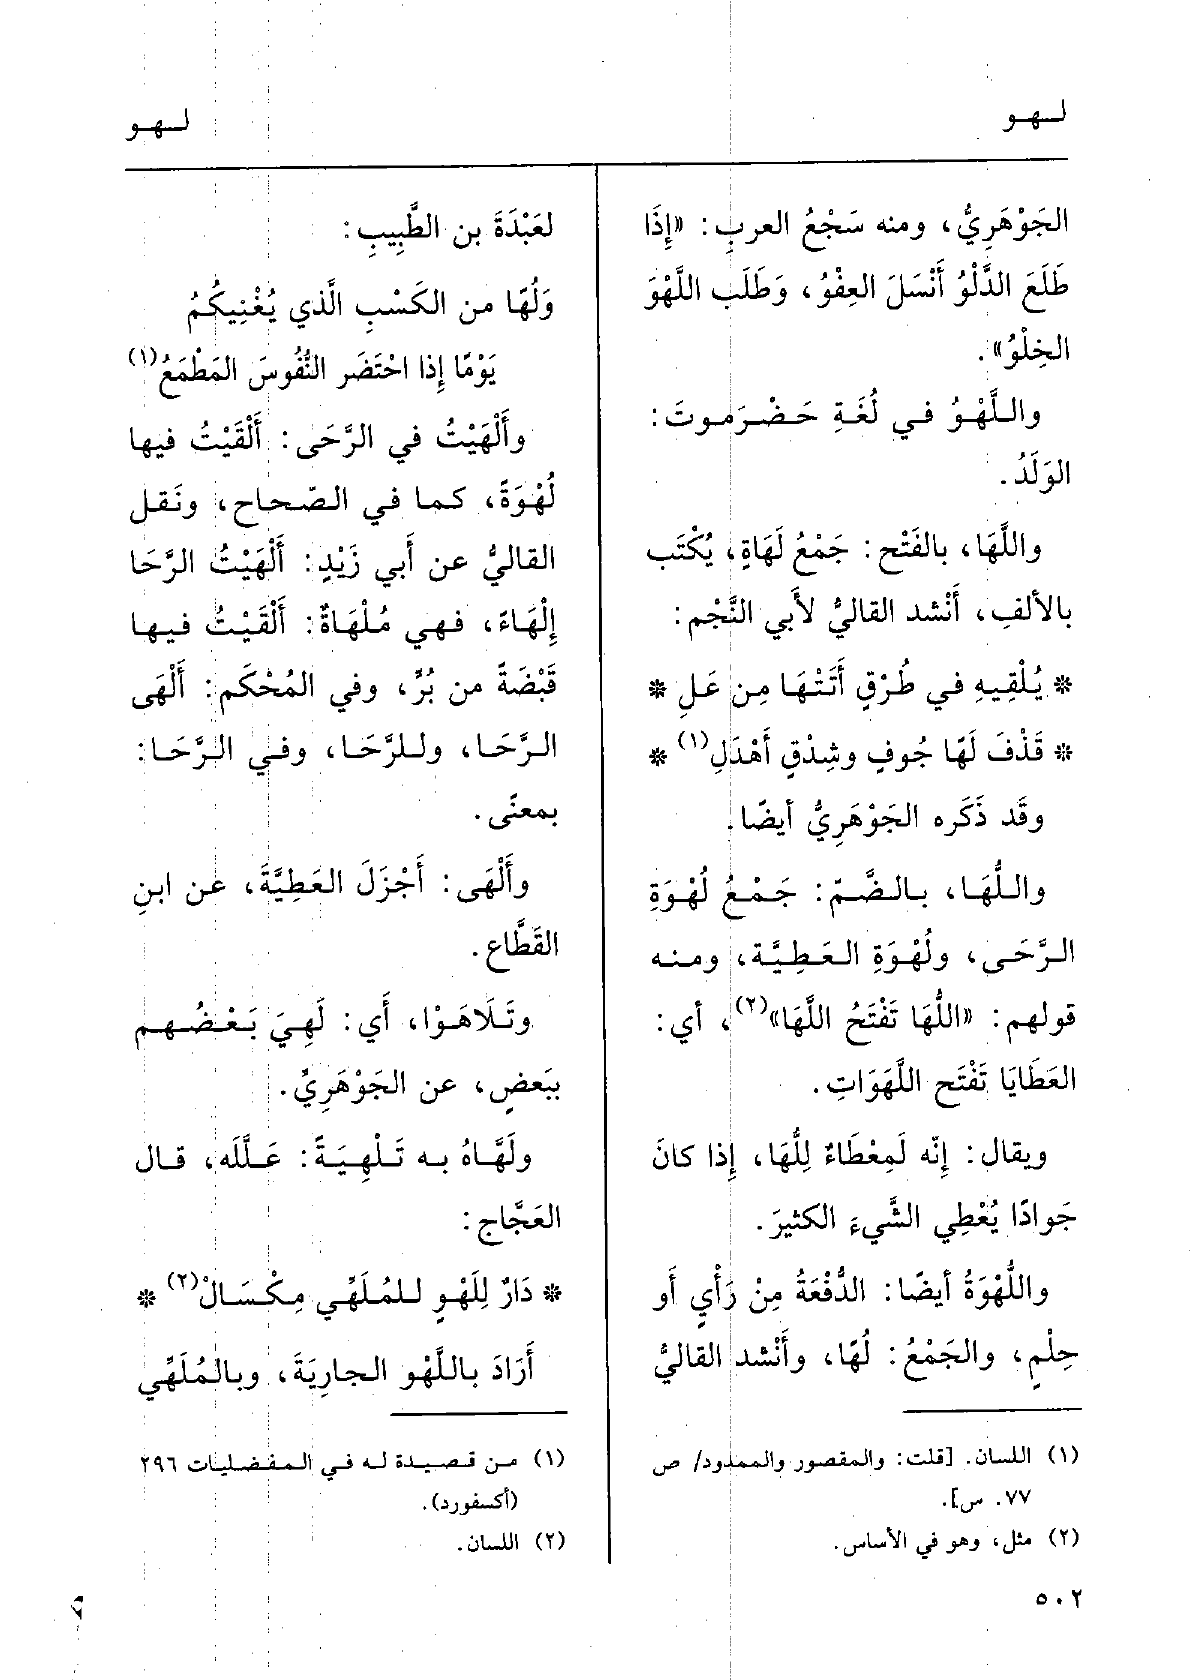 لـهـو
لـهـو
الجَوْهَرِيُّ، ومنه سَجْعُ العربِ: «إِذَا
طَلَعَ الدَّلْوُ أَنْسَلَ العِفْوُ، وَطَلَب اللَّهْوَ
الخِلْوُ».
واللَّهْوُ في لُغَةِ حَضْرَموتَ:
الوَلَدُ.
واللَّهَا، بالفَتْح: جَمْعُ لَهَاةٍ، يُكْتَب
بالألفِ، أَنْشد القاليُّ لأَبي النَّجْم:
* يُلْقِيهِ في طُرْقٍ أَتَتْهَا مِن عَلِ *
* قَذْفَ لَهًا جُوفٍ وشِدْقٍ أَهْدَلِ(١) *
وقَد ذَكَره الجَوْهَرِيُّ أيضًا.
واللُّهَا، بالضَّمّ: جَمْعُ لُهْوَةِ
الرَّحَى، ولُهْوَةِ العَطِيَّة، ومنه
قولهم: «اللُّهَا تَفْتَحُ اللَّهَا»(٢)، أي:
العَطَايَا تَفْتَح اللَّهَوَاتِ.
ويقال: إِنّه لَمِعْطَاءٌ لِلُّهَا، إِذا كانَ
جَوادًا يُعْطِي الشَّيءَ الكثيرَ.
واللُّهْوَةُ أيضًا: الدُّفْعَةُ مِنْ رَأْيٍ أَو
حِلْمٍ، والجَمْعُ: لُهًا، وأَنْشد القاليُّ
(١) اللسان. [قلت: والمقصور والممدود/ ص
٧٧. س].
(٢) مثل، وهو في الأساس.
لعَبْدَةَ بن الطَّبِيبِ:
وَلُهًا من الكَسْبِ الَّذي يُغْنِيكُمُ
يَوْمًا إِذا احْتَضَر النُّفُوسَ المَطْمَعُ(١)
وأَلْهَيْتُ في الرَّحَى: أَلْقَيْتُ فيها
لُهْوَةً، كما في الصّحاح، ونَقل
القاليُّ عن أبي زَيْدٍ: أَلْهَيْتُ الرَّحَا
إِلْهَاءً، فهي مُلْهَاةٌ: أَلْقَيْتُ فيها
قَبْضَةً من بُرٍّ، وفي المُحْكَم: أَلْهَى
الرَّحَا، وللرَّحَا، وفي الرَّحَا:
بمعنًى.
وأَلْهَى: أَجْزَلَ العَطِيَّةَ، عن ابنِ
القَطَّاع.
وتَلَاهَوْا، أَي: لَهِيَ بَعْضُهم
ببَعضٍ، عن الجَوْهَرِيِّ.
ولَهَّاهُ به تَلْهِيَةً: عَلَّلَه، قال
العَجَّاج:
* دَارٌ لِلَهْوٍ للمُلَهِّي مِكْسَالْ(٢) *
أَرَادَ باللَّهْو الجارِيَةَ، وبالمُلَهِّي
(١) من قصيدة له في المفضليات ٢٩٦
(أكسفورد).
(٢) اللسان.
٥٠٢